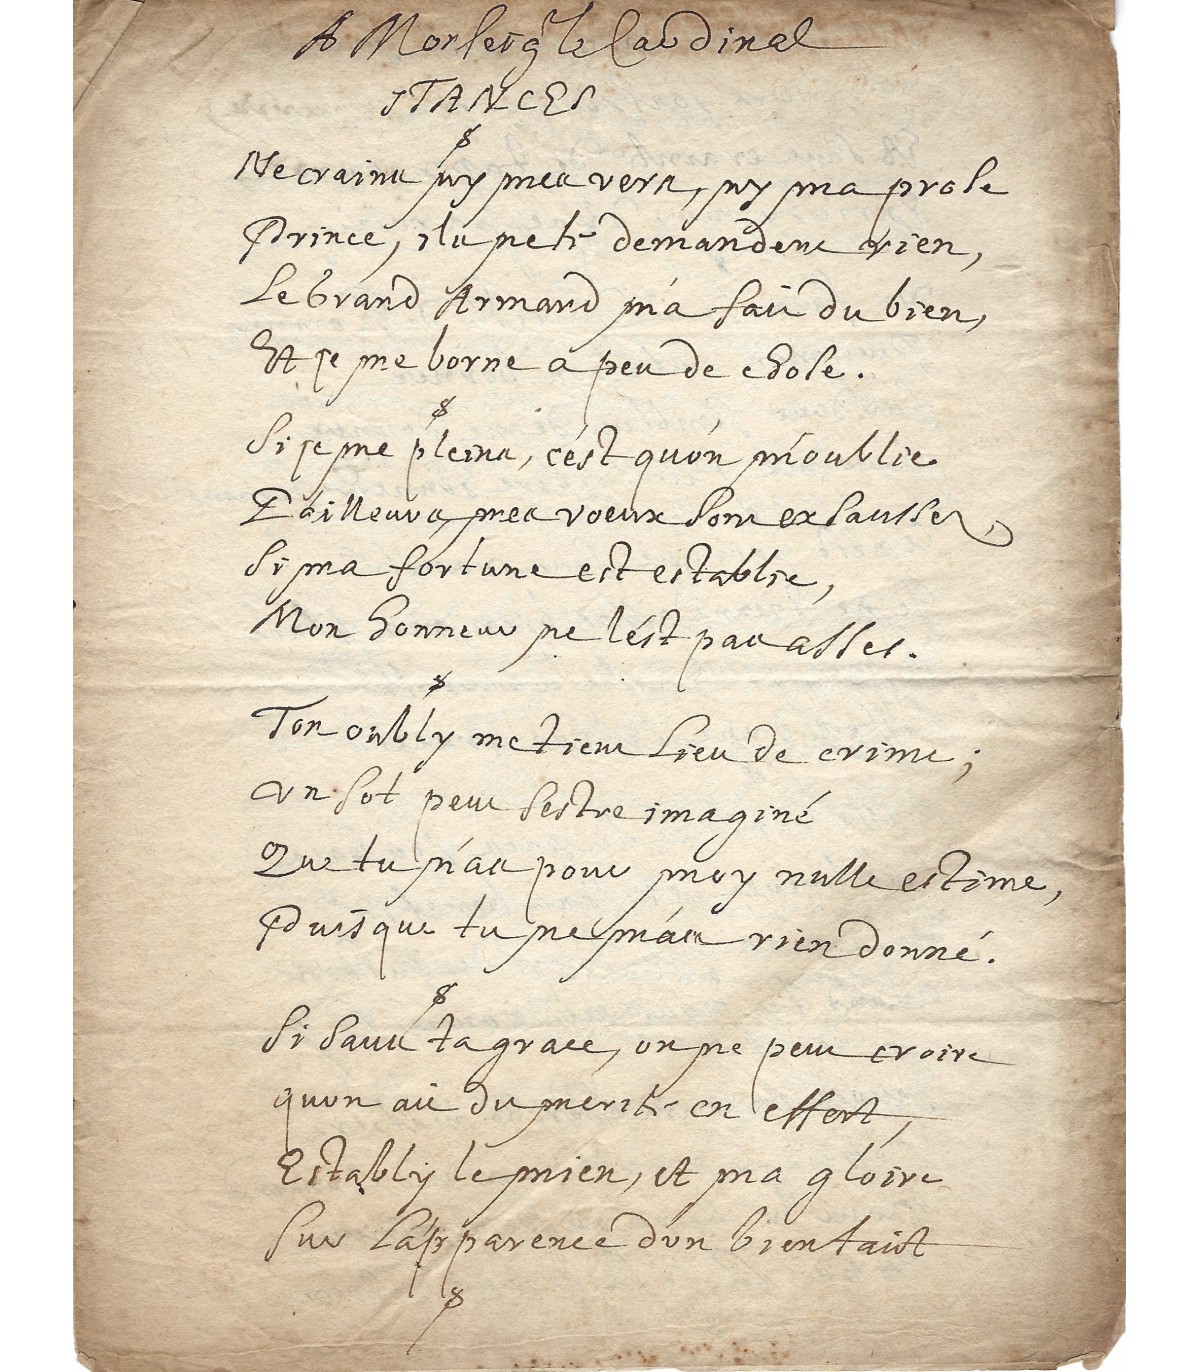 A Monseigr le Cardinal
STANCES
Ne crains ny mes vers, ny ma prose
Prince, ils ne te demandent rien,
Le Grand Armand m'a fait du bien,
Et je me borne a peu de chose.
Si je me pleins, c'est qu'on m'oublie
D'ailleurs, mes voeux sont exsaussez
Si ma fortune est establie,
Mon honneur ne l'est pas asses.
Ton oubly me tient lieu de crime;
un sot peut s'estre imaginé
Que tu n'as pour moy nulle estime,
Puisque tu ne m'as rien donné.
Si sans ta grace, on ne peut croire
quon ait du merite en effort,
Estably le mien, et ma gloire
Sur l'apparence d'un bienfaict